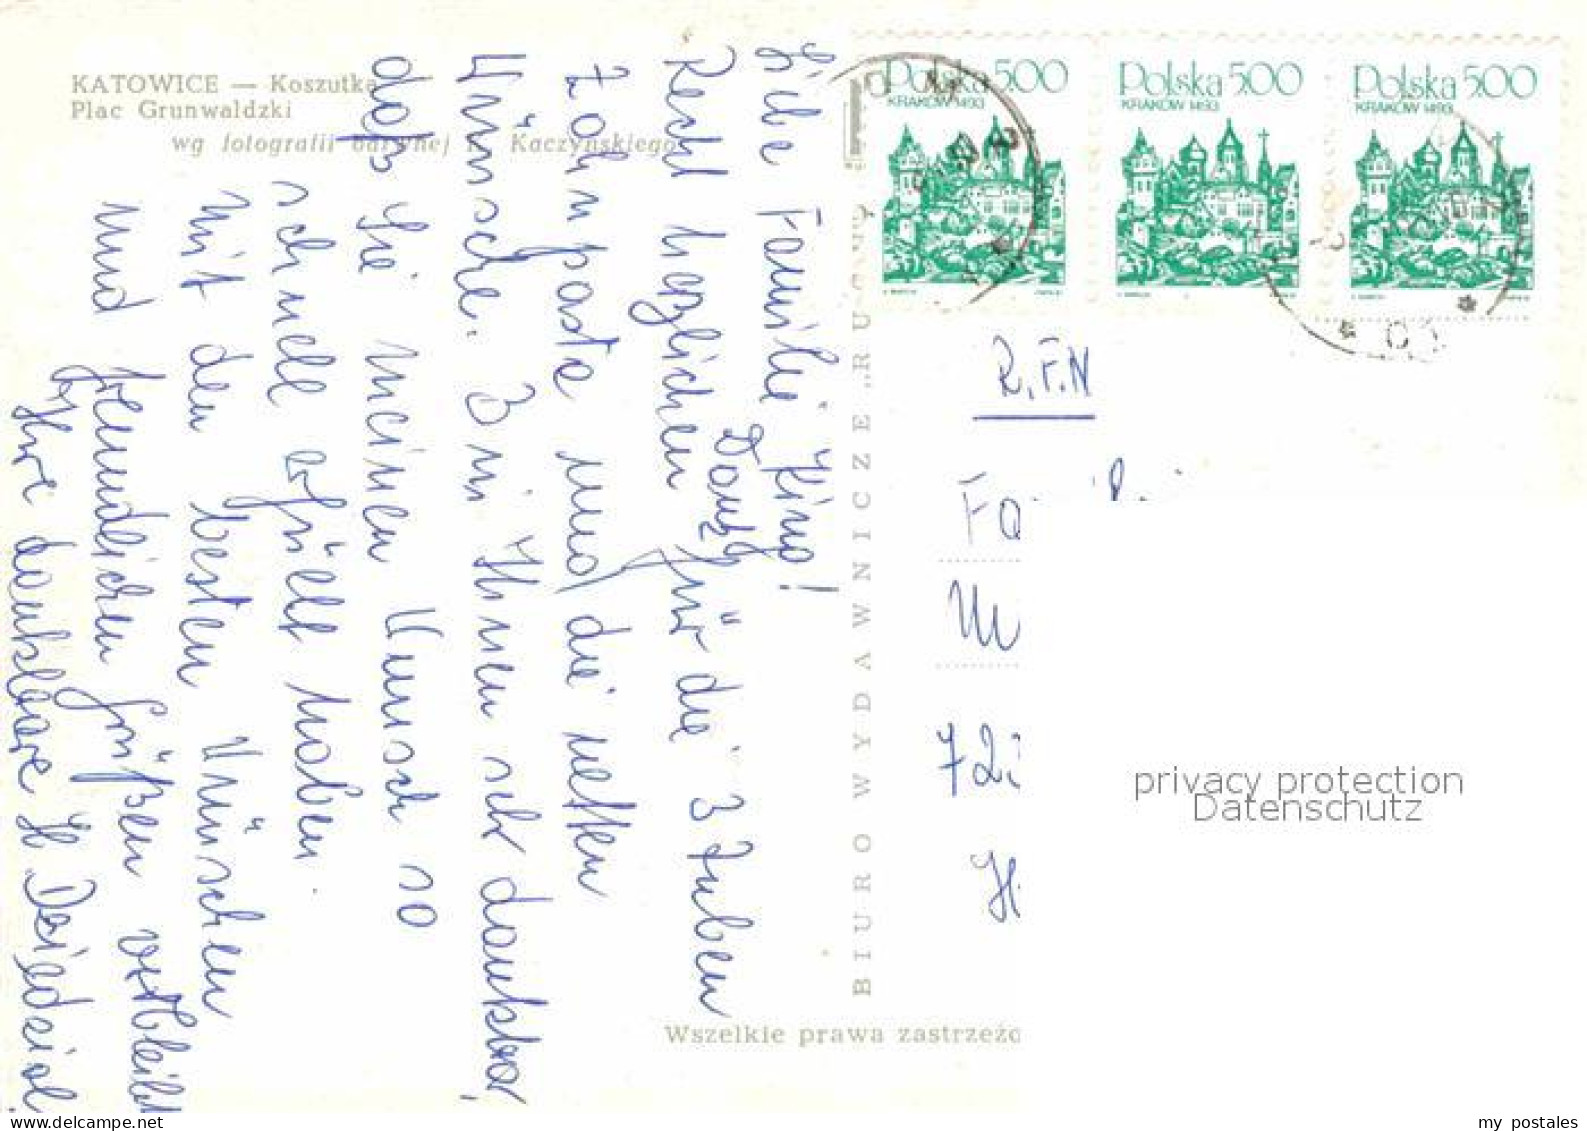 KATOWICE — Koszutka
Plac Grunwaldzki
wg fotografii barwnej Kaczyńskiego
Polska 5.00
KRAKÓW 1493
Polska 5.00
KRAKÓW 1493
Polska 5.00
KRAKÓW 1493
Liebe Familie King!
Recht herzlichen Dank für die 3 Tuben
Zahnpasta und die netten
Wünsche. Bin Ihnen sehr dankbar,
daß Sie meinen Wunsch so
schnell erfüllt haben.
Mit den besten Wünschen
und freundlichen Grüßen verbleibt
Ihre dankbare H. Dziedzioł.
BIURO WYDAWNICZE „RU
R.F.N
Fa
72
H
privacy protection
Datenschutz
Wszelkie prawa zastrzeżo
www.delcampe.net
my_postales